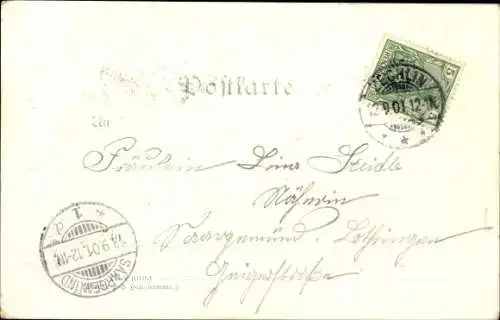 Postkarte
An
Fräulein Lina Steidle
Näherin
Saargemünd, Lothringen
Geigerstraße
5
12.9.01.12-1N.
SAARGEMÜND
.9.01.12-1N.
* 1 d